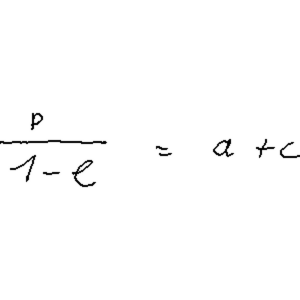 \frac{p}{1-e} = a + c